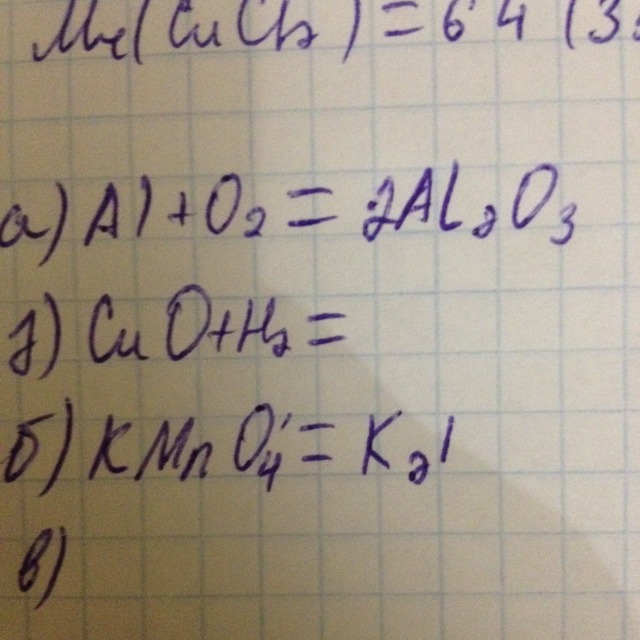 Mr(CuCl₂) = 64 (3
а) Al + O₂ = 2Al₂O₃
д) CuO + H₂ =
б) KMnO₄ = K₂
в)